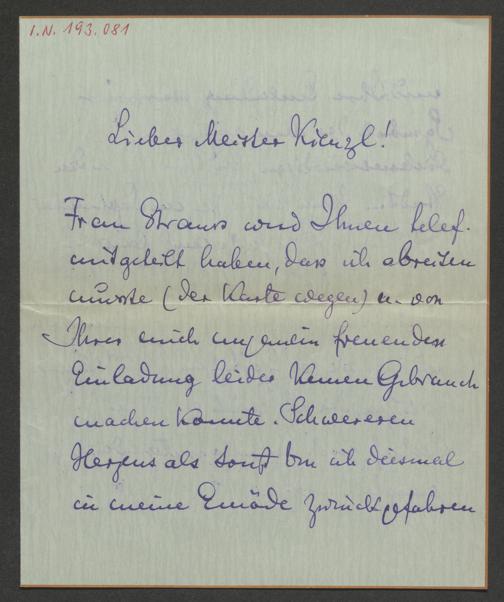 I.N. 193.081
Lieber Meister Kienzl!
Frau Strauss wird Ihnen telef.
mitgeteilt haben, dass ich abreisen
musste (der Karte wegen) u. von
Ihrer mich ungemein freuenden
Einladung leider keinen Gebrauch
machen konnte. Schwereren
Herzens als sonst bin ich diesmal
in meine Einöde zurückgefahren